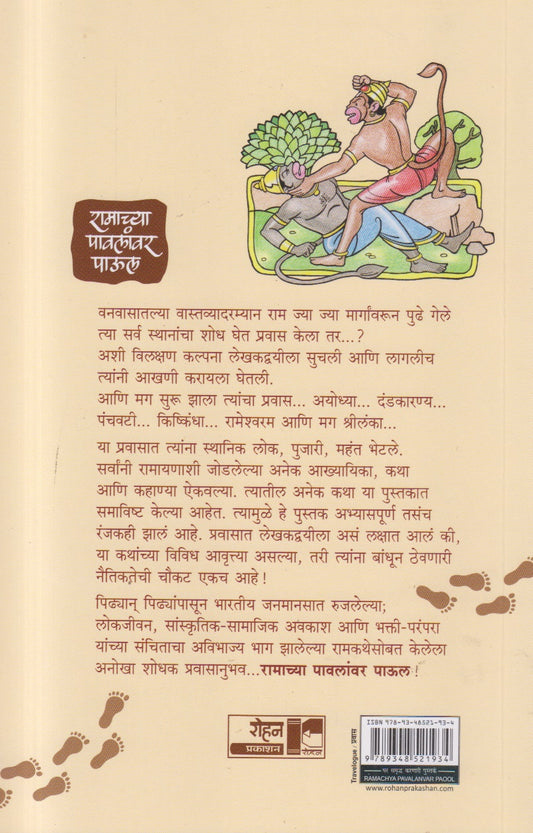 रामाच्या
पावलांवर
पाऊल
वनवासातल्या वास्तव्यादरम्यान राम ज्या ज्या मार्गांवरून पुढे गेले
त्या सर्व स्थानांचा शोध घेत प्रवास केला तर...?
अशी विलक्षण कल्पना लेखकद्वयीला सुचली आणि लागलीच
त्यांनी आखणी करायला घेतली.
आणि मग सुरू झाला त्यांचा प्रवास... अयोध्या... दंडकारण्य...
पंचवटी... किष्किंधा... रामेश्वरम आणि मग श्रीलंका...
या प्रवासात त्यांना स्थानिक लोक, पुजारी, महंत भेटले.
सर्वांनी रामायणाशी जोडलेल्या अनेक आख्यायिका, कथा
आणि कहाण्या ऐकवल्या. त्यातील अनेक कथा या पुस्तकात
समाविष्ट केल्या आहेत. त्यामुळे हे पुस्तक अभ्यासपूर्ण तसंच
रंजकही झालं आहे. प्रवासात लेखकद्वयीला असं लक्षात आलं की,
या कथांच्या विविध आवृत्त्या असल्या, तरी त्यांना बांधून ठेवणारी
नैतिकतेची चौकट एकच आहे!
पिढ्यान् पिढ्यांपासून भारतीय जनमानसात रुजलेल्या;
लोकजीवन, सांस्कृतिक-सामाजिक अवकाश आणि भक्ती-परंपरा
यांच्या संचिताचा अविभाज्य भाग झालेल्या रामकथेसोबत केलेला
अनोखा शोधक प्रवासानुभव...रामाच्या पावलांवर पाऊल!
रोहन
प्रकाशन
रोहन
Travelogue / प्रवास
ISBN 978-93-48521-93-4
9 789348 521934
घर समृद्ध करणारी पुस्तकं
RAMACHYA PAVALANVAR PAOOL
www.rohanprakashan.com